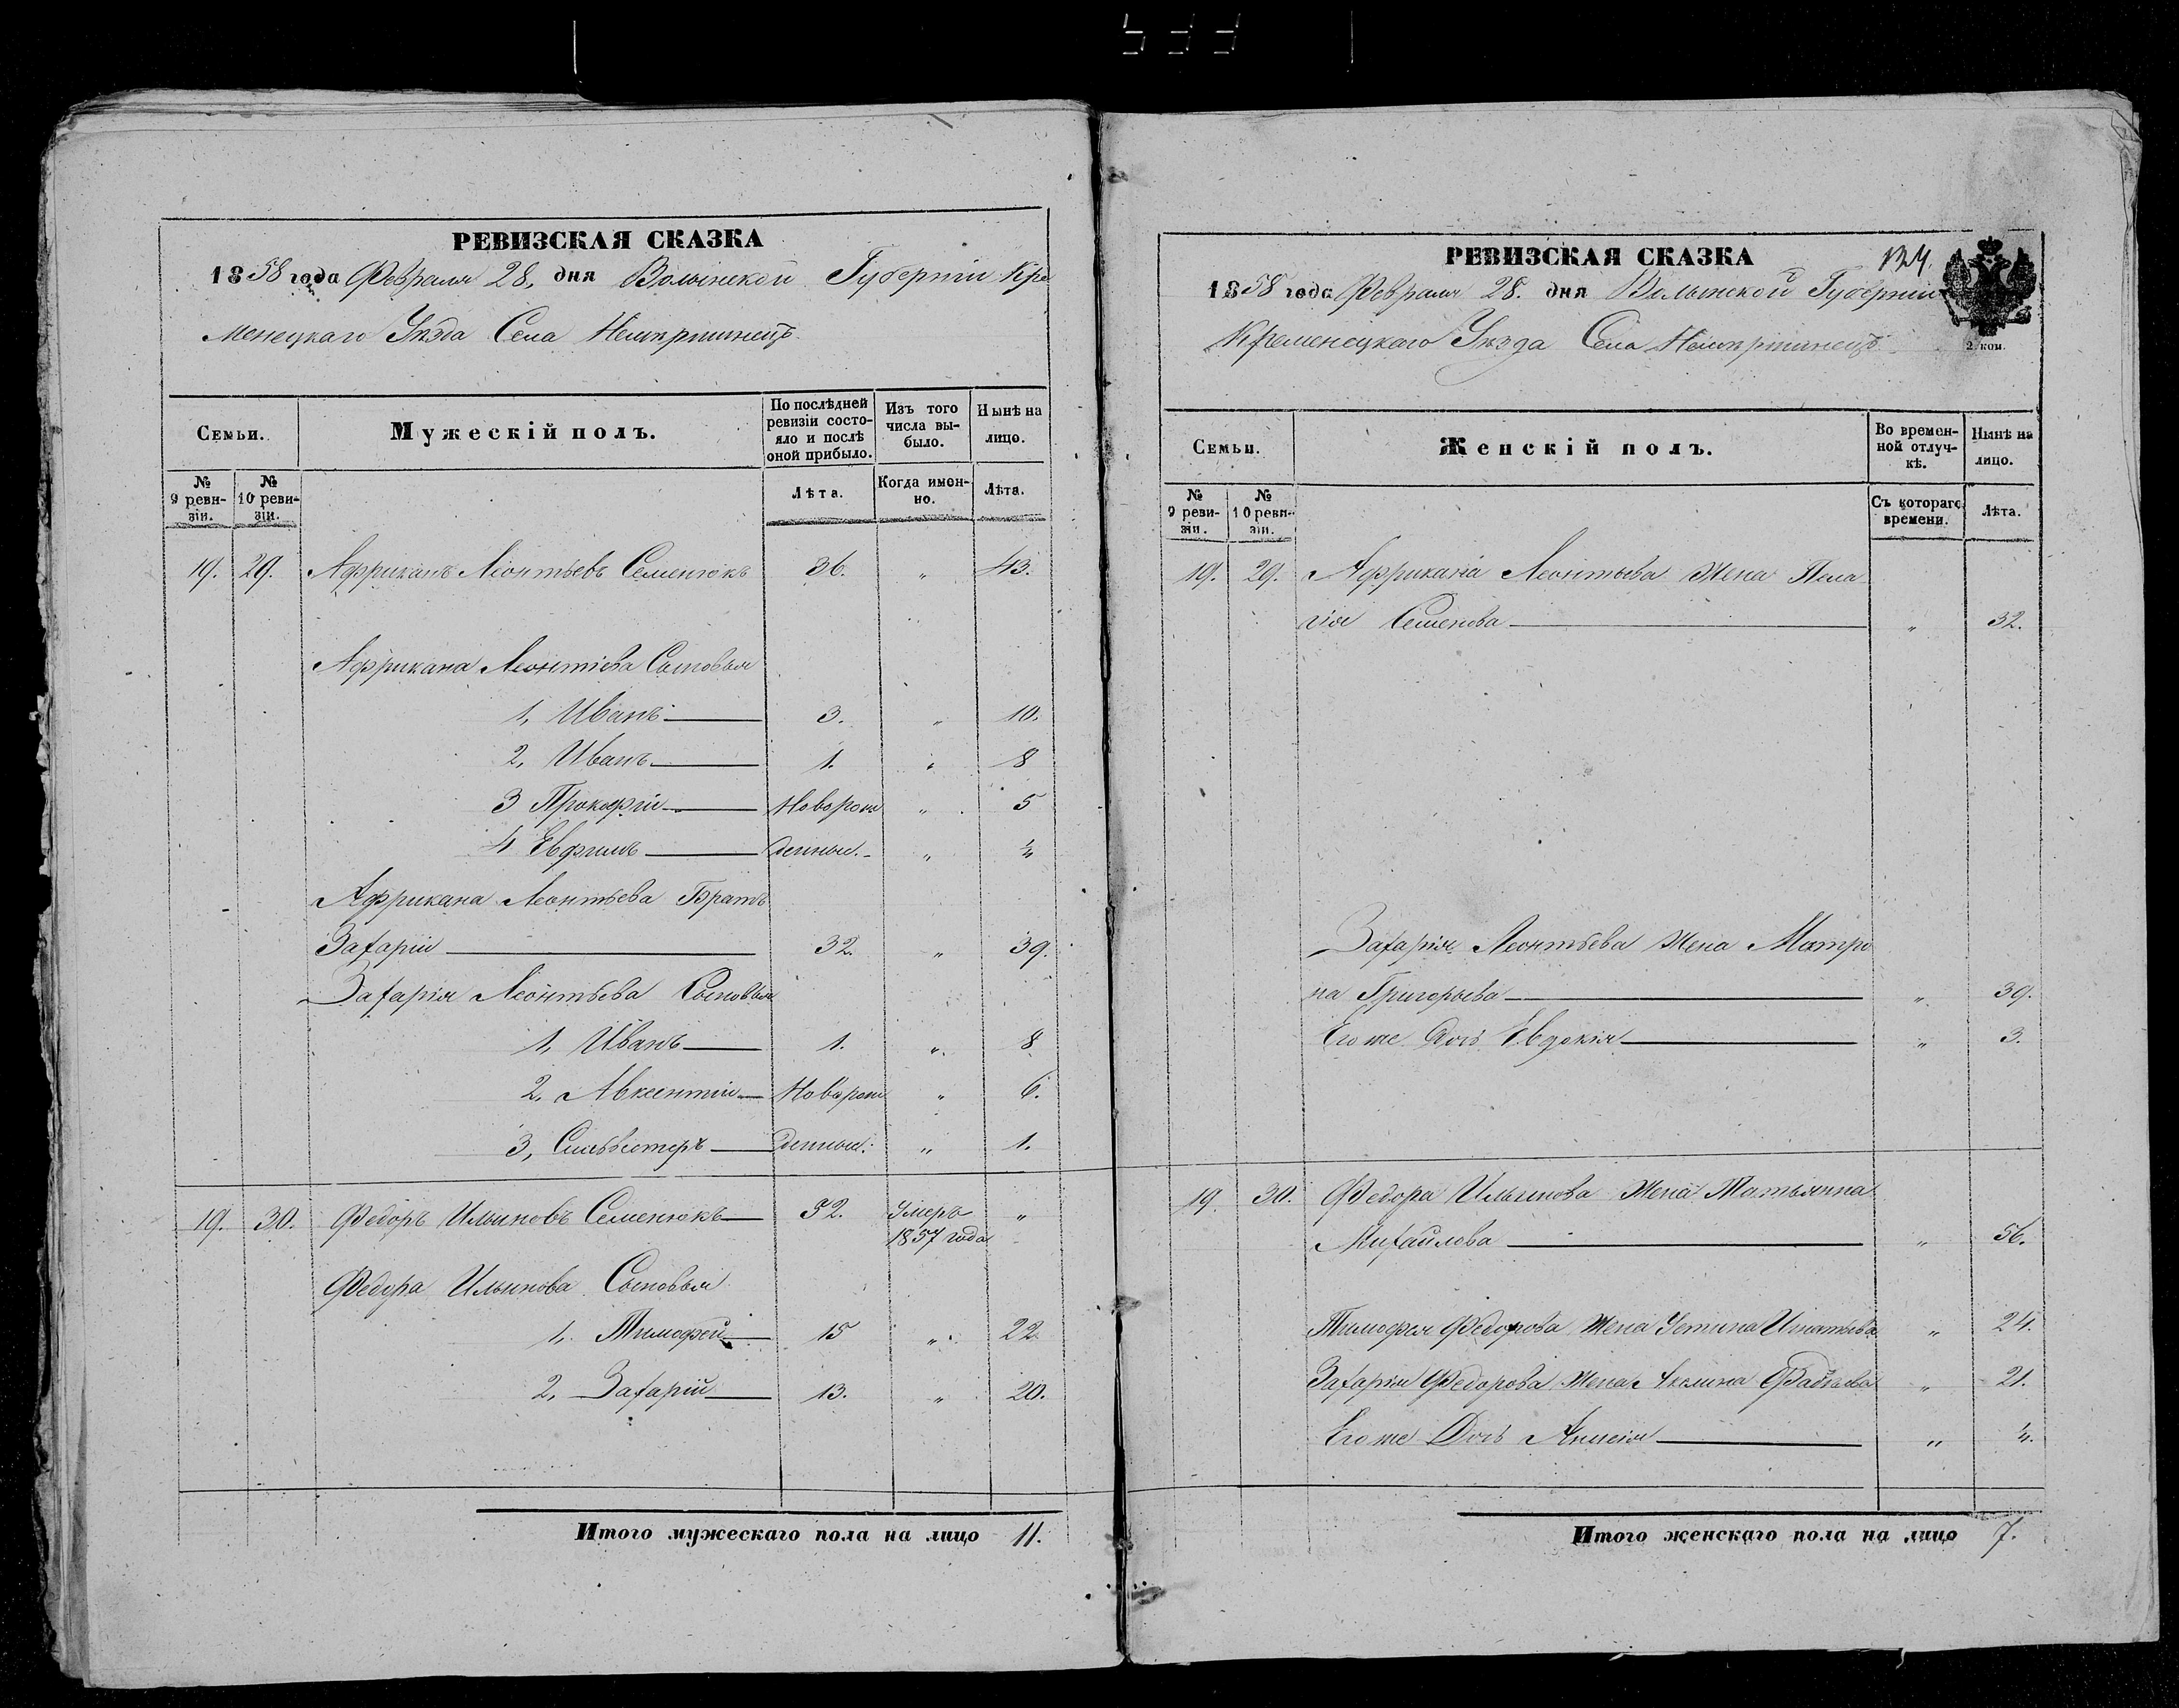 РЕВИЗСКАЯ СКАЗКА
1858 года Февраля 28, дня Волынской Губерніи Кре
менецкаго Уѣзда Села
Семьи.
Мужескій полъ.
По послѣдней ревизіи состояло и послѣ оной прибыло.
Изъ того числа выбыло.
Нынѣ на лицо.
№ 9 ревизіи.
№ 10 ревизіи.
Лѣта.
Когда именно.
Лѣта.
19. 29. Африканъ Леонтьевъ Семенюкъ 36. „ 43.
Африкана Леонтіева Сыновья
1, Иванъ 3. „ 10.
2, Иванъ 1. „ 8
3 Прокофій Новорож „ 5
4 Евфимъ денные. „ ¼
Африкана Леонтьева Братъ
Захарій 32. „ 39.
Захарія Леонтьева Сыновья
1, Иванъ 1. „ 8
2, Авксентій Новорож „ 6.
3, Сильвестеръ денные. „ 1.
19. 30. Федоръ Ильиновъ Семенюкъ 52. Умеръ „
1857 года
Федора Ильинова Сыновья
1, Тимофей 15 „ 22
2, Захарій 13. „ 20.
Итого мужескаго пола на лицо 11.
РЕВИЗСКАЯ СКАЗКА
134.
1858 года Февраля 28. дня Волынской Губерніи
Кременецкаго Уѣзда Села
2 коп.
Семьи.
Женскій полъ.
Во временной отлучкѣ.
Нынѣ на лицо.
№ 9 ревизіи.
№ 10 ревизіи.
Съ котораго времени.
Лѣта.
19. 29. Африкана Леонтьева Жена Пела
гія Семенова „ 32.
Захарія Леонтьева Жена Матро
на Григорьева „ 39.
Его же Дочь Евдокія „ 3.
19. 30. Федора Ильинова Жена Татьянна
Михайлова „ 56.
Тимофея Федорова Жена Устина Игнатьева „ 24.
Захарія Федорова Жена Акилина Фадѣева „ 21.
Его же Дочь „ ¼.
Итого женскаго пола на лицо 7.